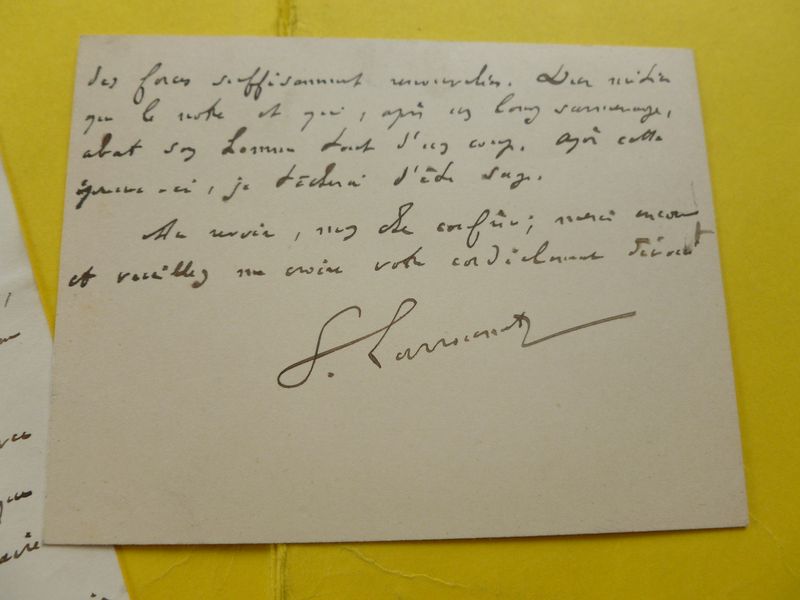 des forces suffisamment renouvelées. Dur métier
que le nôtre et qui, après un long surmenage,
abat son homme tout d'un coup. Après cette
-ci, je tâcherai d'être sage.
Au revoir, mon cher confrère ; merci encore
et veuillez me croire votre cordialement dévoué
G. Larroumet